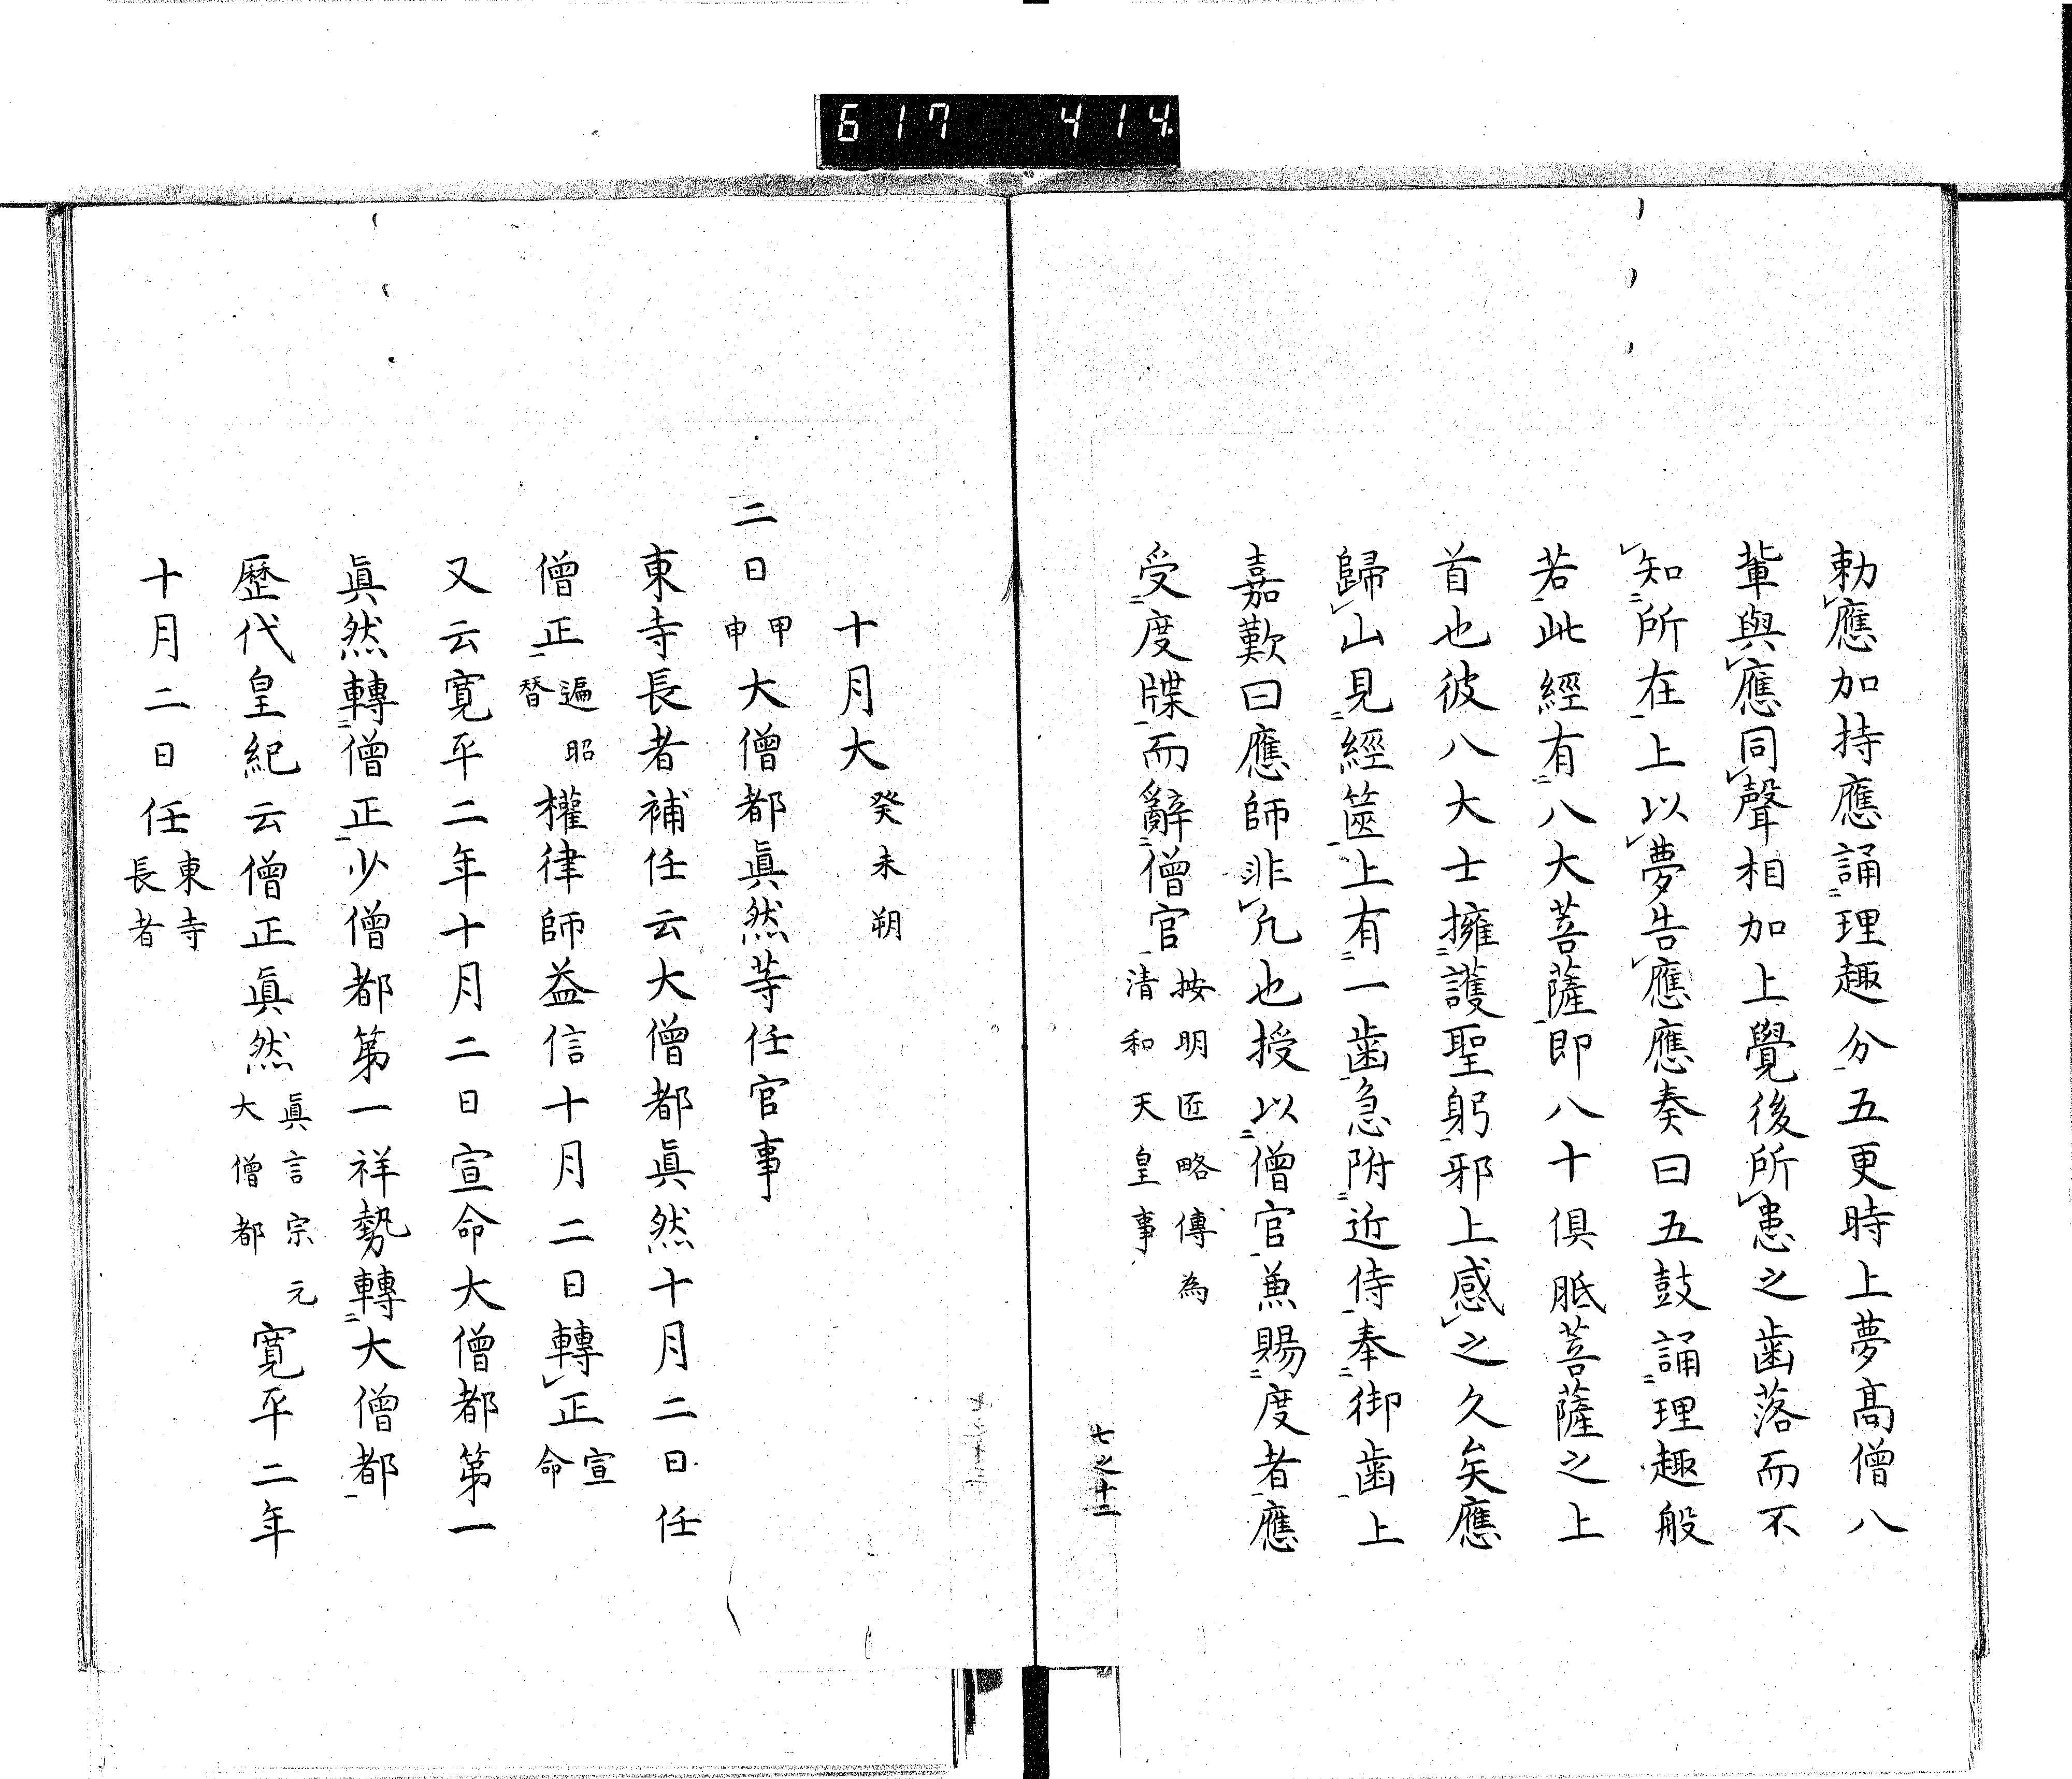 617 414.
勅應加持應誦理趣分五更時上夢髙僧八
輩與應同聲相加上覺後所患之歯落而不
知所在上以夢告應應奏曰五鼓誦理趣般
若此經有八大菩薩即八十俱胝菩薩之上
首也彼八大士擁護聖躬邪上感之久矣應
歸山見經篋上有一歯急附近侍奉御歯上
嘉歎曰應師非凢也授以僧官兼賜度者應
受度牒而辭僧官按明匠略傳為清和天皇事
七之十一
十月大癸未朔
二日甲申大僧都眞然等任官事
東寺長者補任云大僧都眞然十月二日任
僧正遍昭替權律師益信十月二日轉正宣命
又云寛平二年十月二日宣命大僧都第一
眞然轉僧正少僧都第一祥勢轉大僧都
歷代皇紀云僧正眞然眞言宗元大僧都寛平二年
十月二日任東寺長者